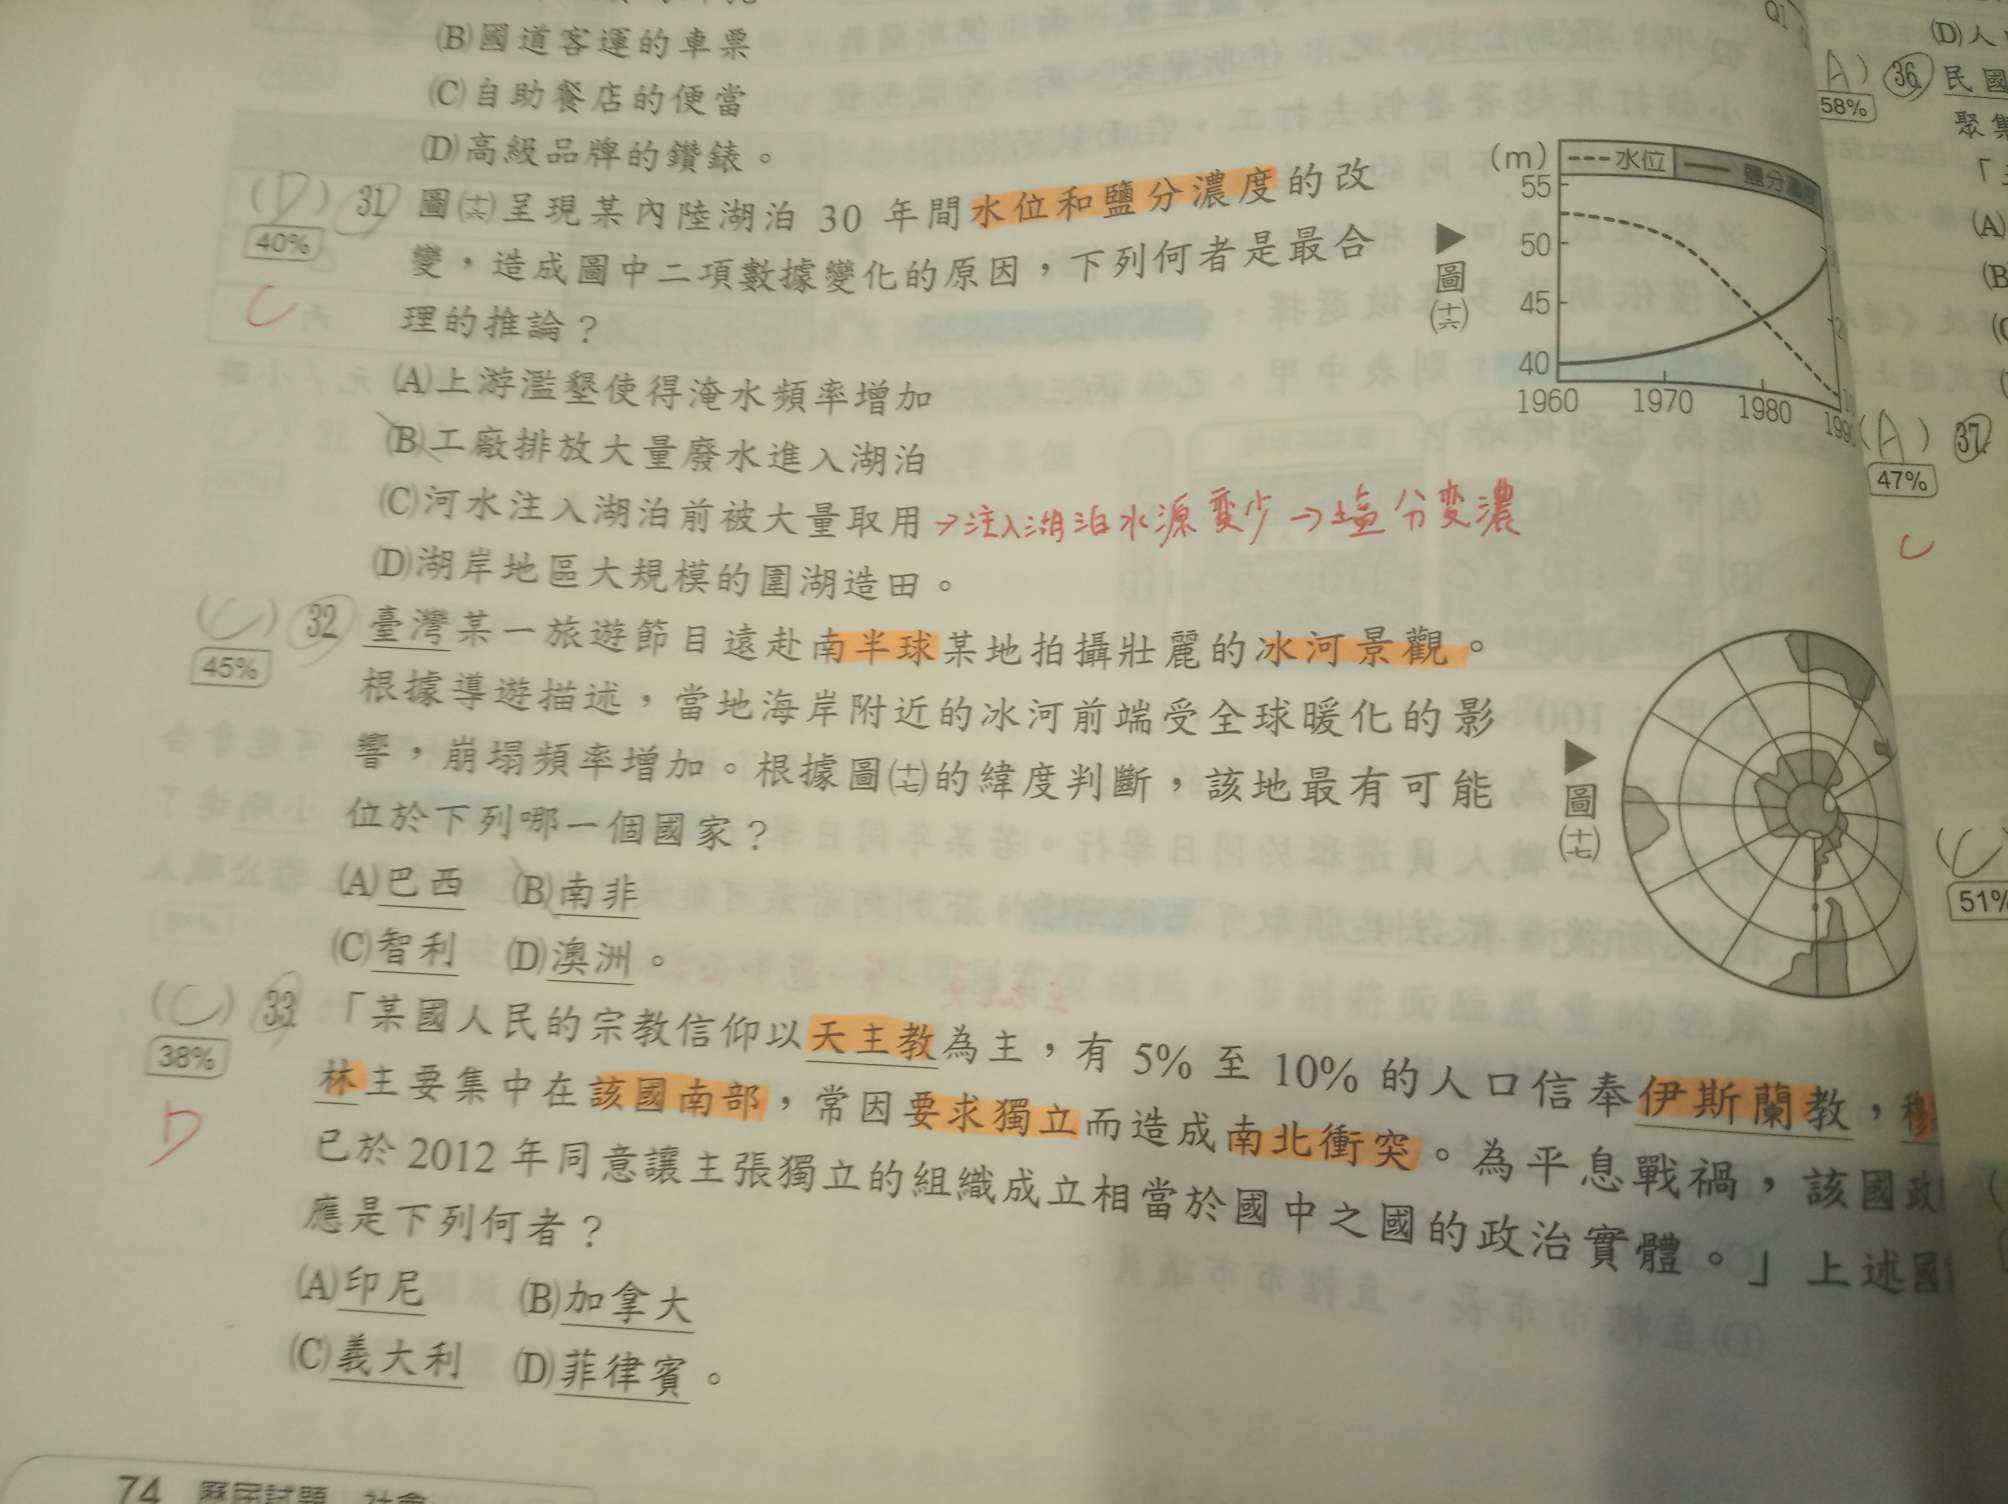 (B)國道客運的車票
(C)自助餐店的便當
(D)高級品牌的鑽錶。
(D) 31 圖(十六)呈現某內陸湖泊 30 年間水位和鹽分濃度的改
40%
變，造成圖中二項數據變化的原因，下列何者是最合
C
理的推論？
(A)上游濫墾使得淹水頻率增加
(B)工廠排放大量廢水進入湖泊
(C)河水注入湖泊前被大量取用→注入湖泊水源變少→塩分变濃
(D)湖岸地區大規模的圍湖造田。
(m)
水位 鹽分濃度
55
50
45
40
1960 1970 1980 1990
▶
圖
(十六)
(C) 32 臺灣某一旅遊節目遠赴南半球某地拍攝壯麗的冰河景觀。
45%
根據導遊描述，當地海岸附近的冰河前端受全球暖化的影
響，崩塌頻率增加。根據圖(十七)的緯度判斷，該地最有可能
位於下列哪一個國家？
(A)巴西 (B)南非
(C)智利 (D)澳洲。
▶
圖
(十七)
(C) 33 「某國人民的宗教信仰以天主教為主，有 5% 至 10% 的人口信奉伊斯蘭教，穆
38%
D
林主要集中在該國南部，常因要求獨立而造成南北衝突。為平息戰禍，該國政
已於 2012 年同意讓主張獨立的組織成立相當於國中之國的政治實體。」上述國
應是下列何者？
(A)印尼 (B)加拿大
(C)義大利 (D)菲律賓。
74 歷屆試題 社會
(D)人
(A) 36 民國
58%
聚集
(A)
(B)
(A) 37
47%
C
(C)
51%